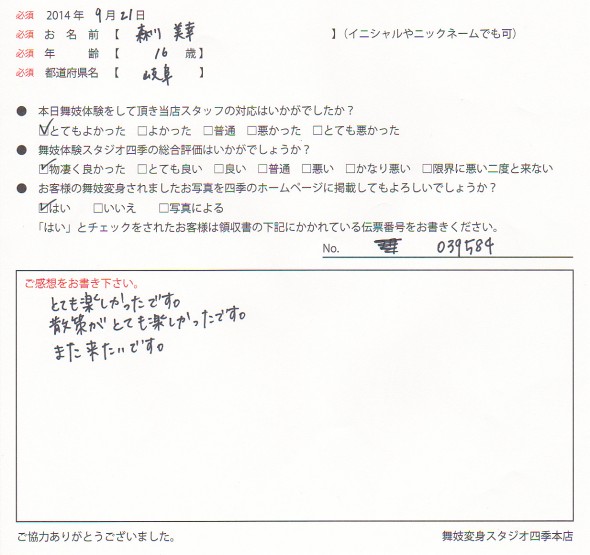 必須 2014年 9月21日
必須 お名前【 森川 美幸 】(イニシャルやニックネームでも可)
必須 年齢【 16 歳】
必須 都道府県名【 岐阜 】
● 本日舞妓体験をして頂き当店スタッフの対応はいかがでしたか？
☑とてもよかった □よかった □普通 □悪かった □とても悪かった
● 舞妓体験スタジオ四季の総合評価はいかがでしょうか？
☑物凄く良かった □とても良い □良い □普通 □悪い □かなり悪い □限界に悪い二度と来ない
● お客様の舞妓変身されましたお写真を四季のホームページに掲載してもよろしいでしょうか？
☑はい □いいえ □写真による
「はい」とチェックをされたお客様は領収書の下記にかかれている伝票番号をお書きください。
No. 039584
ご感想をお書き下さい。
とても楽しかったです。
散策がとても楽しかったです。
また来たいです。
ご協力ありがとうございました。
舞妓変身スタジオ四季本店